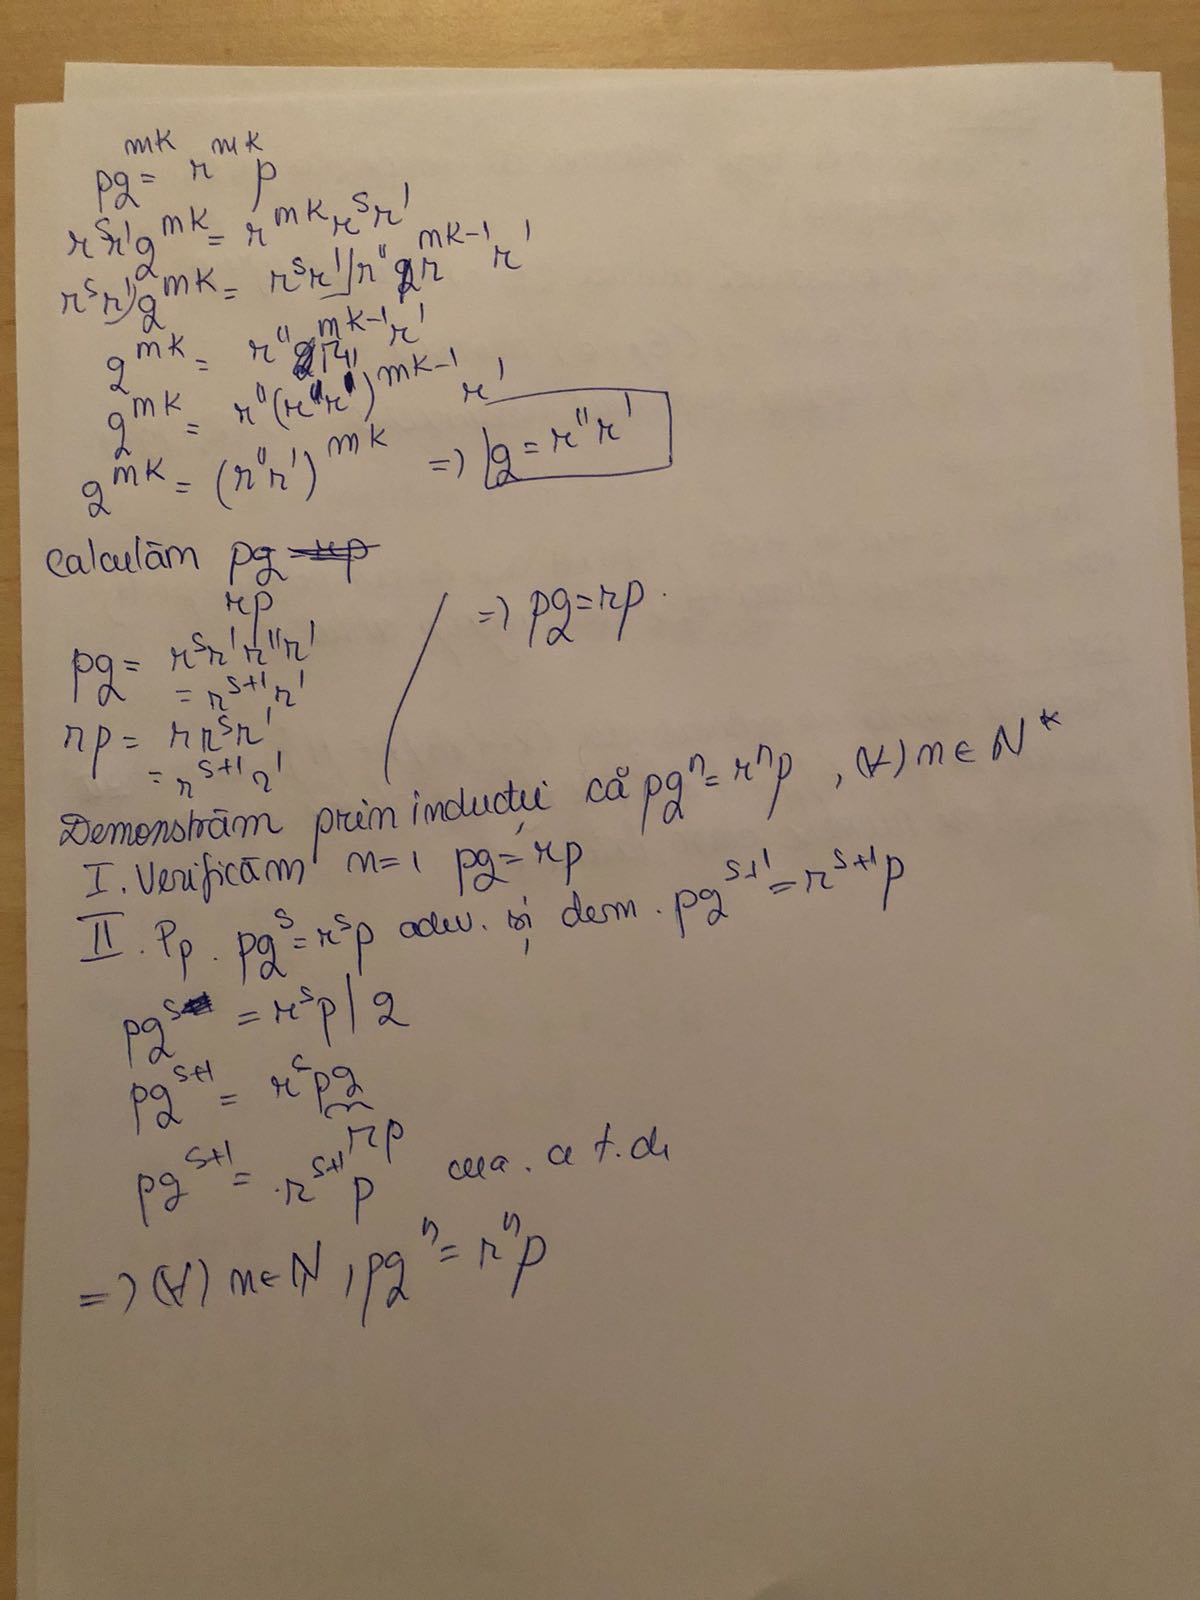 pq^{mk} = r^{mk} p
r^s r' q^{mk} = r^{mk} r^s r'
r^s r') q^{mk} = r^s r' | r'' r^{mk-1} r'
q^{mk} = r'' r^{mk-1} r'
q^{mk} = r'' (r' r'')^{mk-1} r'
q^{mk} = (r'' r')^{mk} => q = r'' r'
Calculăm pq
rp
pq = r^s r' r'' r'
= r^{s+1} r'
rp = r r^s r'
= r^{s+1} r'
=> pq = rp.
Demonstrăm prin inducție că pq^n = r^n p, (∀) n ∈ N*
I. Verificăm n=1, pq = rp
II. Pp. pq^s = r^s p adev. și dem. pq^{s+1} = r^{s+1} p
pq^s = r^s p | q
pq^{s+1} = r^s pq
rp
pq^{s+1} = r^{s+1} p cea. c t. d.
=> (∀) n ∈ N, pq^n = r^n p